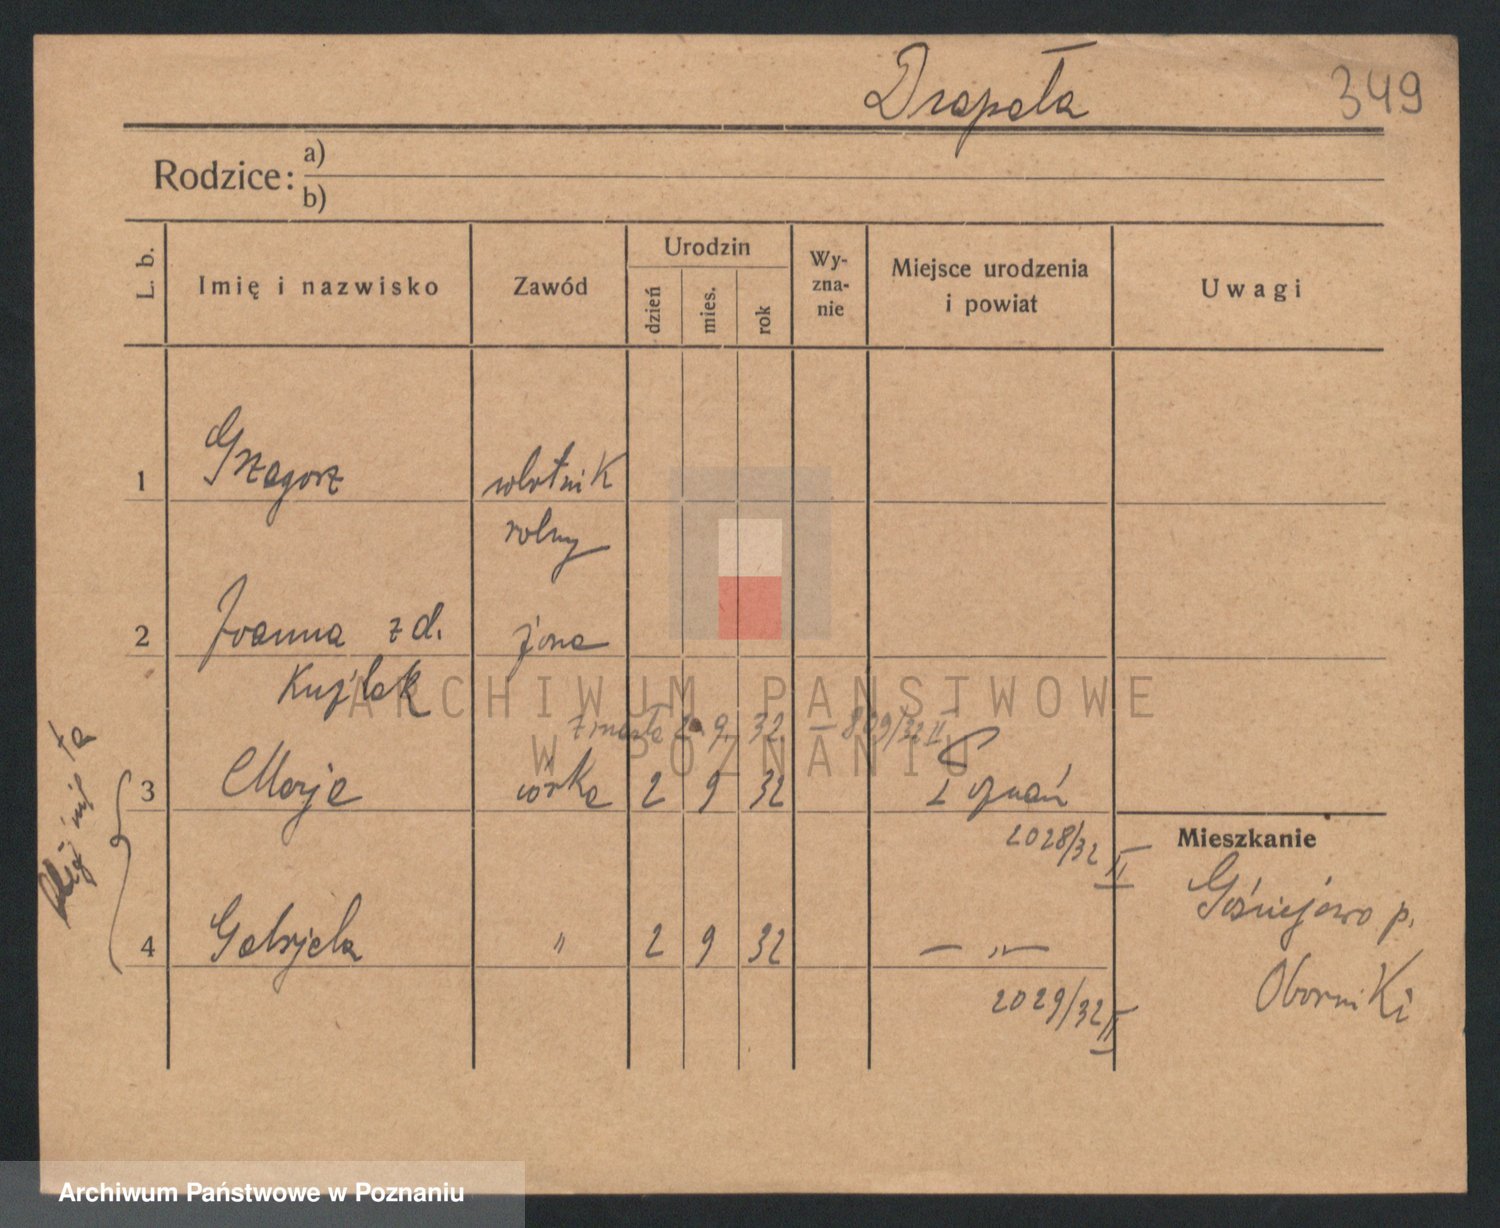 Drapała 349
Rodzice: a)
b)
L. b. Imię i nazwisko Zawód Urodzin dzień mies. rok Wy-zna-nie Miejsce urodzenia i powiat Uwagi
1 Grzegorz robotnik
rolny
2 Joanna z d. żona
Kujlak
zmarła 2 9 32 – 829/32 II
3 Marja córka 2 9 32 Poznań
2028/32 II
Mieszkanie
Gościejewo p.
Oborniki
4 Gabrjela " 2 9 32 — " —
2029/32 II
bliźnięta
ARCHIWUM PAŃSTWOWE
W POZNANIU
Archiwum Państwowe w Poznaniu